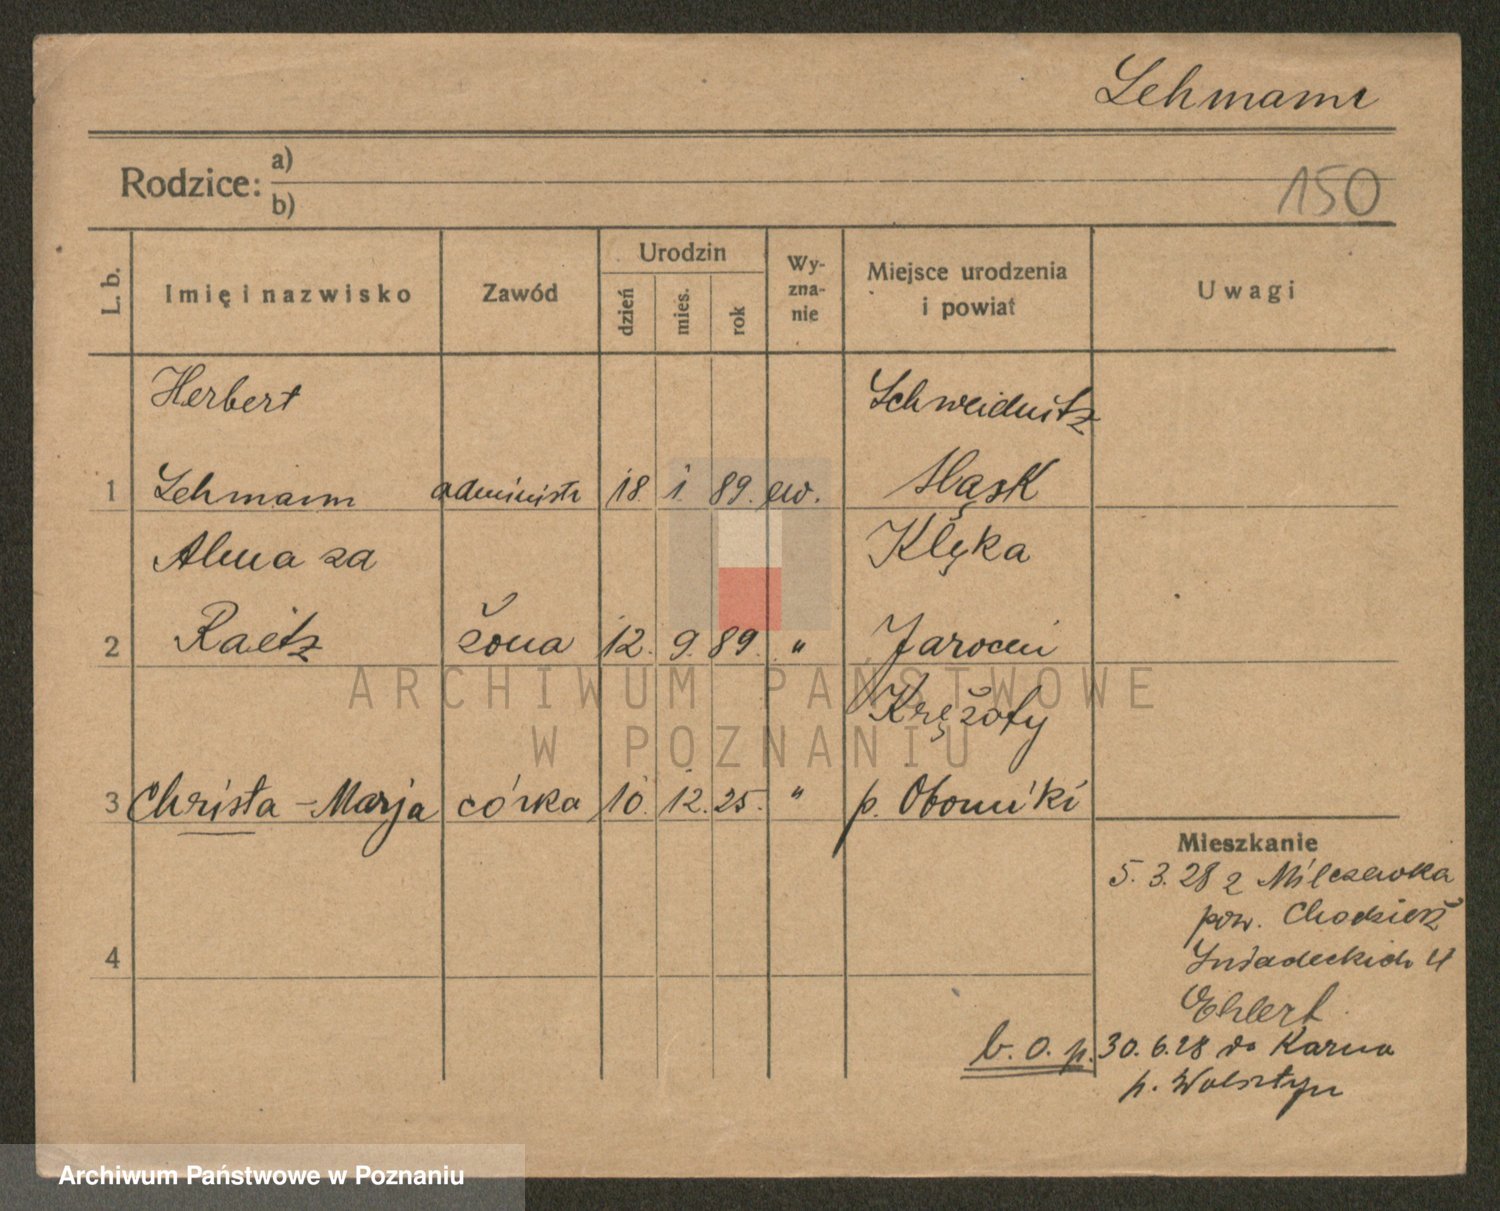 Lehmann
Rodzice: a)
b)
150
L. b.
Imię i nazwisko
Zawód
Urodzin
dzień
mies.
rok
Wy-
zna-
nie
Miejsce urodzenia
i powiat
Uwagi
Herbert
Schweidnitz
1 Lehmann administr 18. 1. 89. ew. Śląsk
Alma za
Klęka
2 Raetz żona 12. 9. 89. " Jarocin
Krężoły
3 Christa - Marja córka 10. 12. 25. " p. Oborniki
4
Mieszkanie
5. 3. 28 z Milczewka
pow. Chodzież
Śniadeckich 4
Ehlert
b. o. p. 30. 6. 28 do Karna
p. Wolsztyn
ARCHIWUM PAŃSTWOWE
W POZNANIU
Archiwum Państwowe w Poznaniu